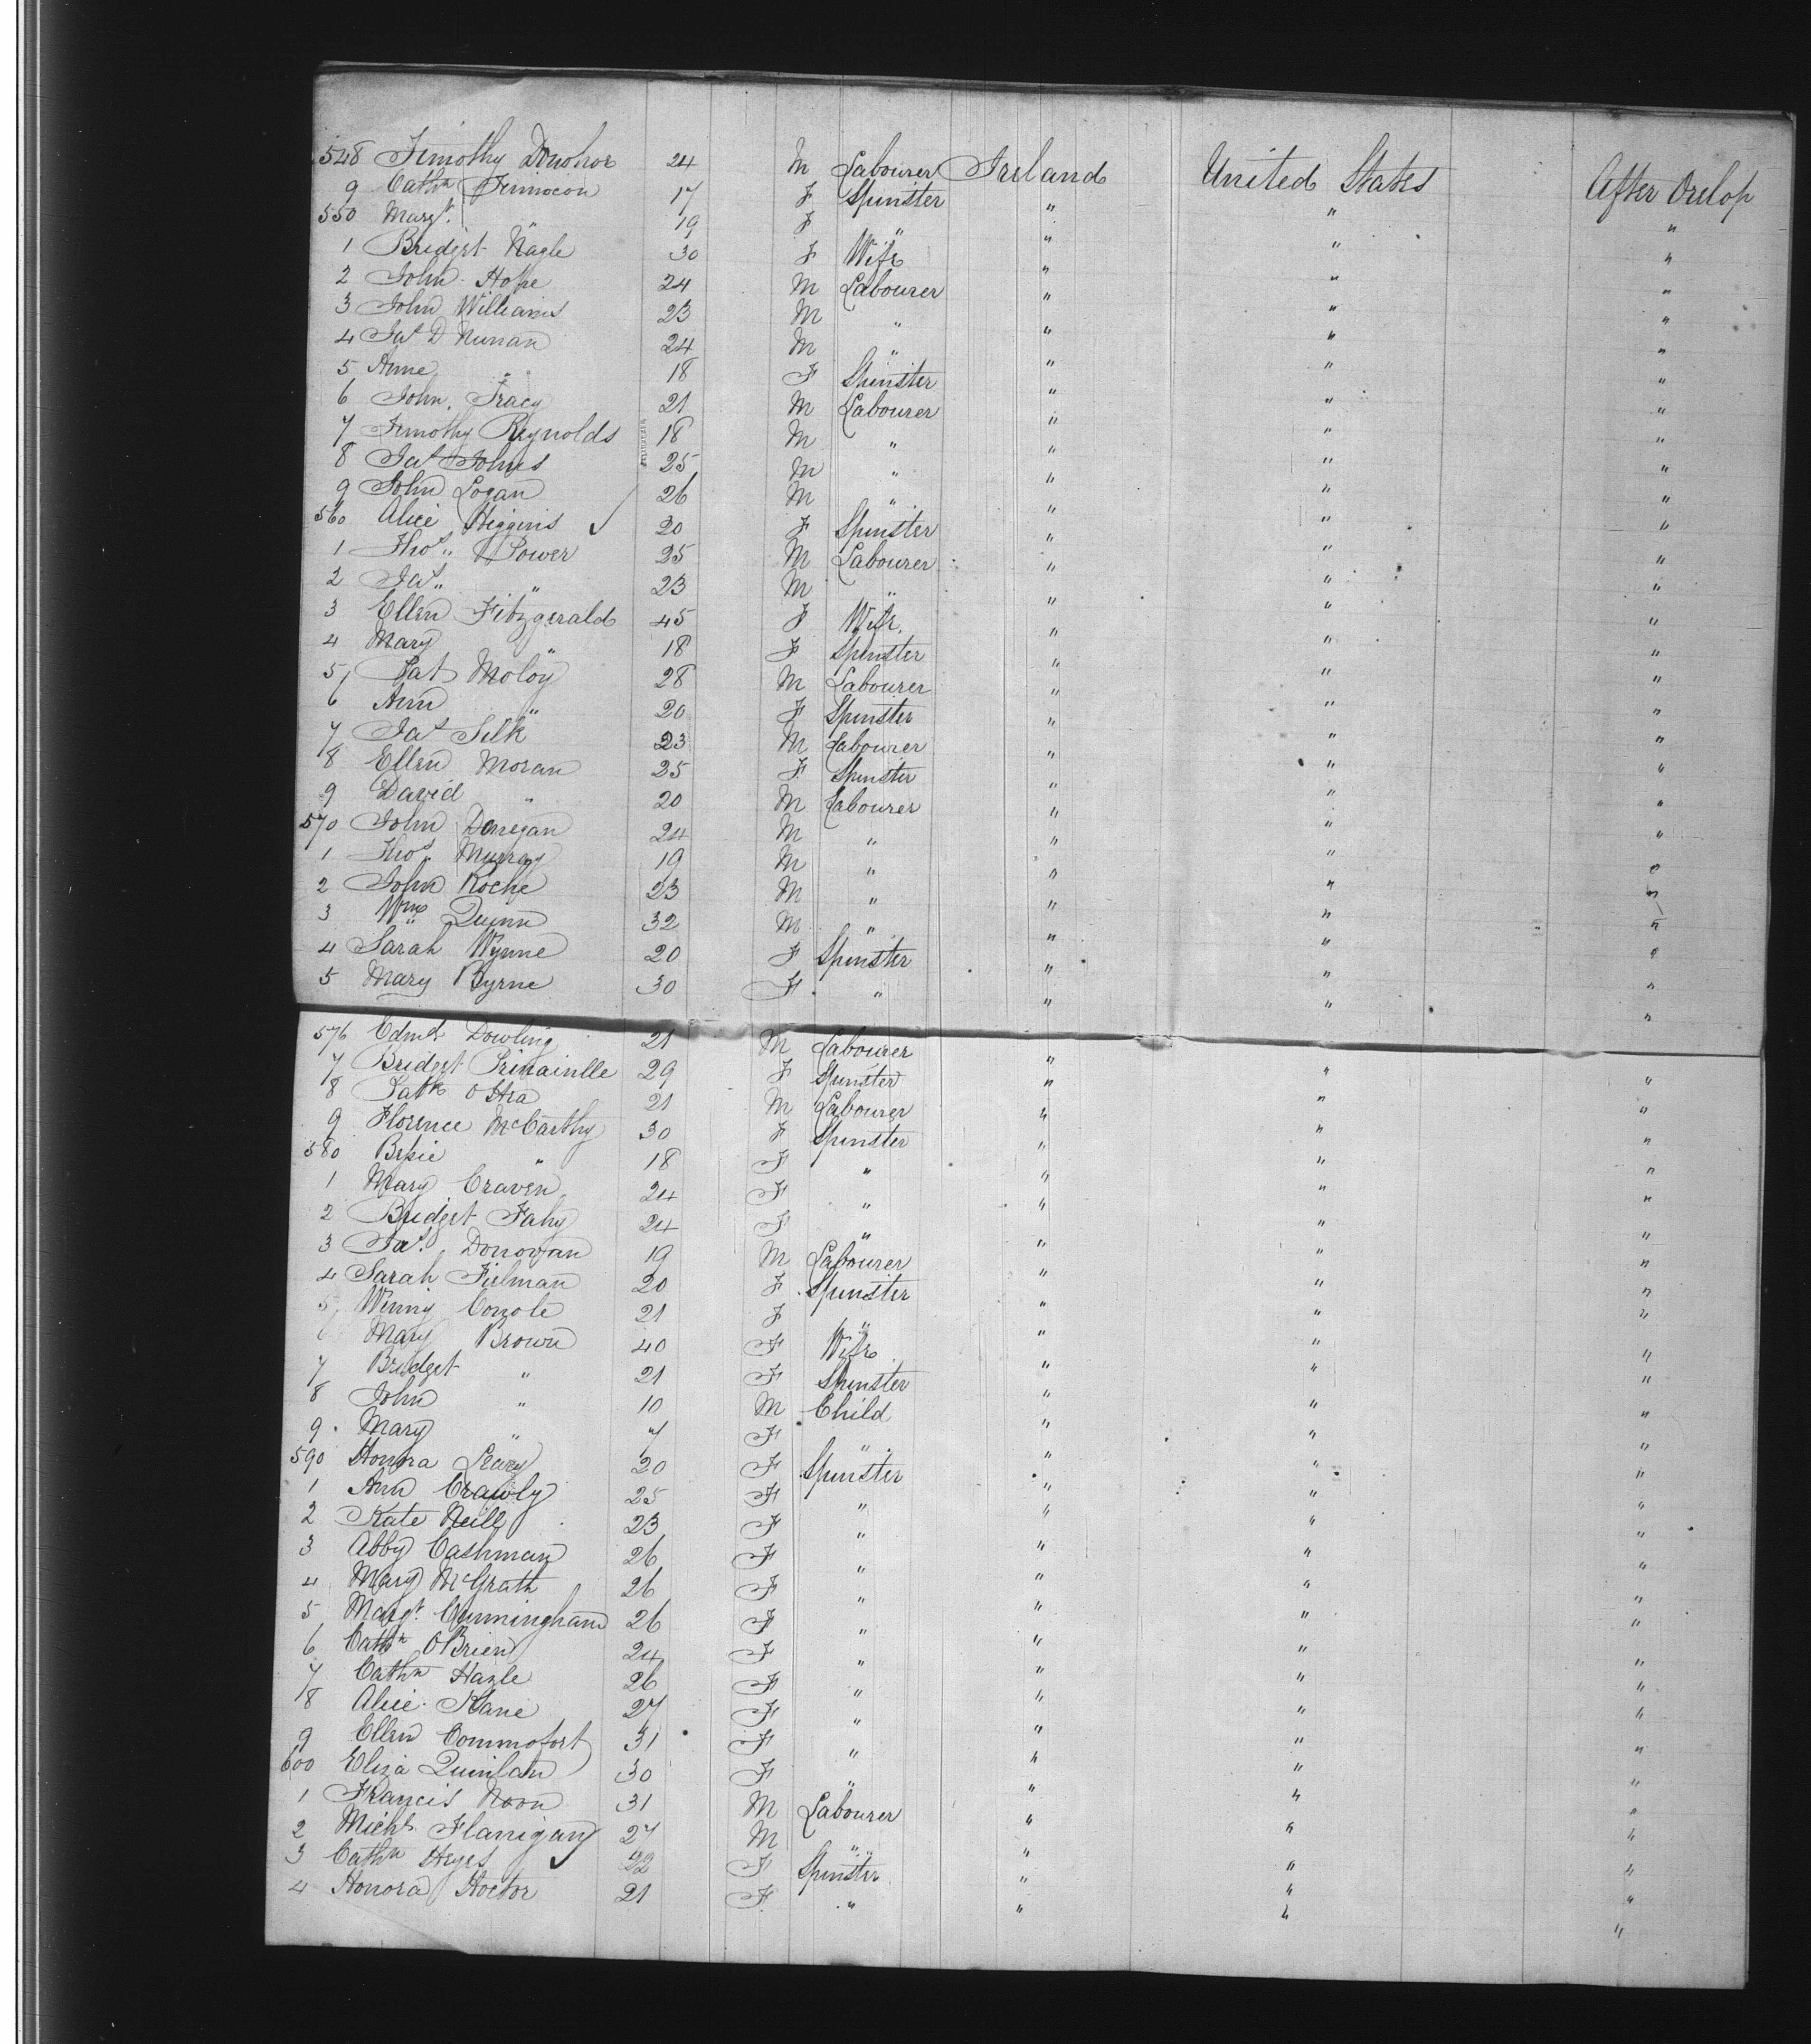 548 Timothy Donohoe 24 M Labourer Ireland United States After Orelop
9 Cathn Finnocon 17 F Spinster " " "
550 Margt. " 19 F " " " "
1 Bridget Nagle 30 F Wife " " "
2 John Hope 24 M Labourer " " "
3 John Williams 23 M " " " "
4 Jas D Nunan 24 M " " " "
5 Anne " 18 F Spinster " " "
6 John Tracy 21 M Labourer " " "
7 Timothy Reynolds 18 M " " " "
8 Jas Johns 25 M " " " "
9 John Logan 26 M " " " "
560 Alice Higgins 20 F Spinster " " "
1 Thos. Power 25 M Labourer " " "
2 Jas. " 23 M " " " "
3 Ellen Fitzgerald 45 F Wife " " "
4 Mary " 18 F Spinster " " "
5 Pat Moloy 28 M Labourer " " "
6 Ann " 20 F Spinster " " "
7 Jas Silk 23 M Labourer " " "
8 Ellen Moran 25 F Spinster " " "
9 David " 20 M Labourer " " "
570 John Donegan 24 M " " " "
1 Thos. Murray 19 M " " " "
2 John Roche 23 M " " " "
3 Wm Quinn 32 M " " " "
4 Sarah Wynne 20 F Spinster " " "
5 Mary Byrne 30 F " " " "
576 Edmd Dowling 21 M Labourer " " "
7 Bridget 29 F Spinster " " "
8 Patk O Hea 21 M Labourer " " "
9 Florence McCarthy 30 F Spinster " " "
580 Bessie " 18 F " " " "
1 Mary Craven 24 F " " " "
2 Bridget Fahy 24 F " " " "
3 Jas. Donovan 19 M Labourer " " "
4 Sarah Fielman 20 F Spinster " " "
5 Winny Conole 21 F " " " "
6 Mary Brown 40 F Wife " " "
7 Bridget " 21 F Spinster " " "
8 John " 10 M Child " " "
9 Mary " 7 F " " " "
590 Honora Leary 20 F Spinster " " "
1 Ann Crawly 25 F " " " "
2 Kate Neill 23 F " " " "
3 Abby Cashman 26 F " " " "
4 Mary McGrath 26 F " " " "
5 Margt. Cunningham 26 F " " " "
6 Cathn OBrien 24 F " " " "
7 Cathn Hazle 26 F " " " "
8 Alice Kane 27 F " " " "
9 Ellen Commofort 31 F " " " "
600 Eliza Quinlan 30 F " " " "
1 Francis Noon 31 M Labourer " " "
2 Michl Flanigan 27 M " " " "
3 Cathn Hayes 22 F Spinster " " "
4 Honora Hoctor 21 F " " " "